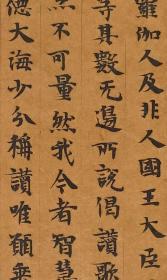 羅伽人及非人國王大臣
等其數无邊所說偈讚歌
亦不可量然我今者智慧
德大海少分稱讚唯願垂